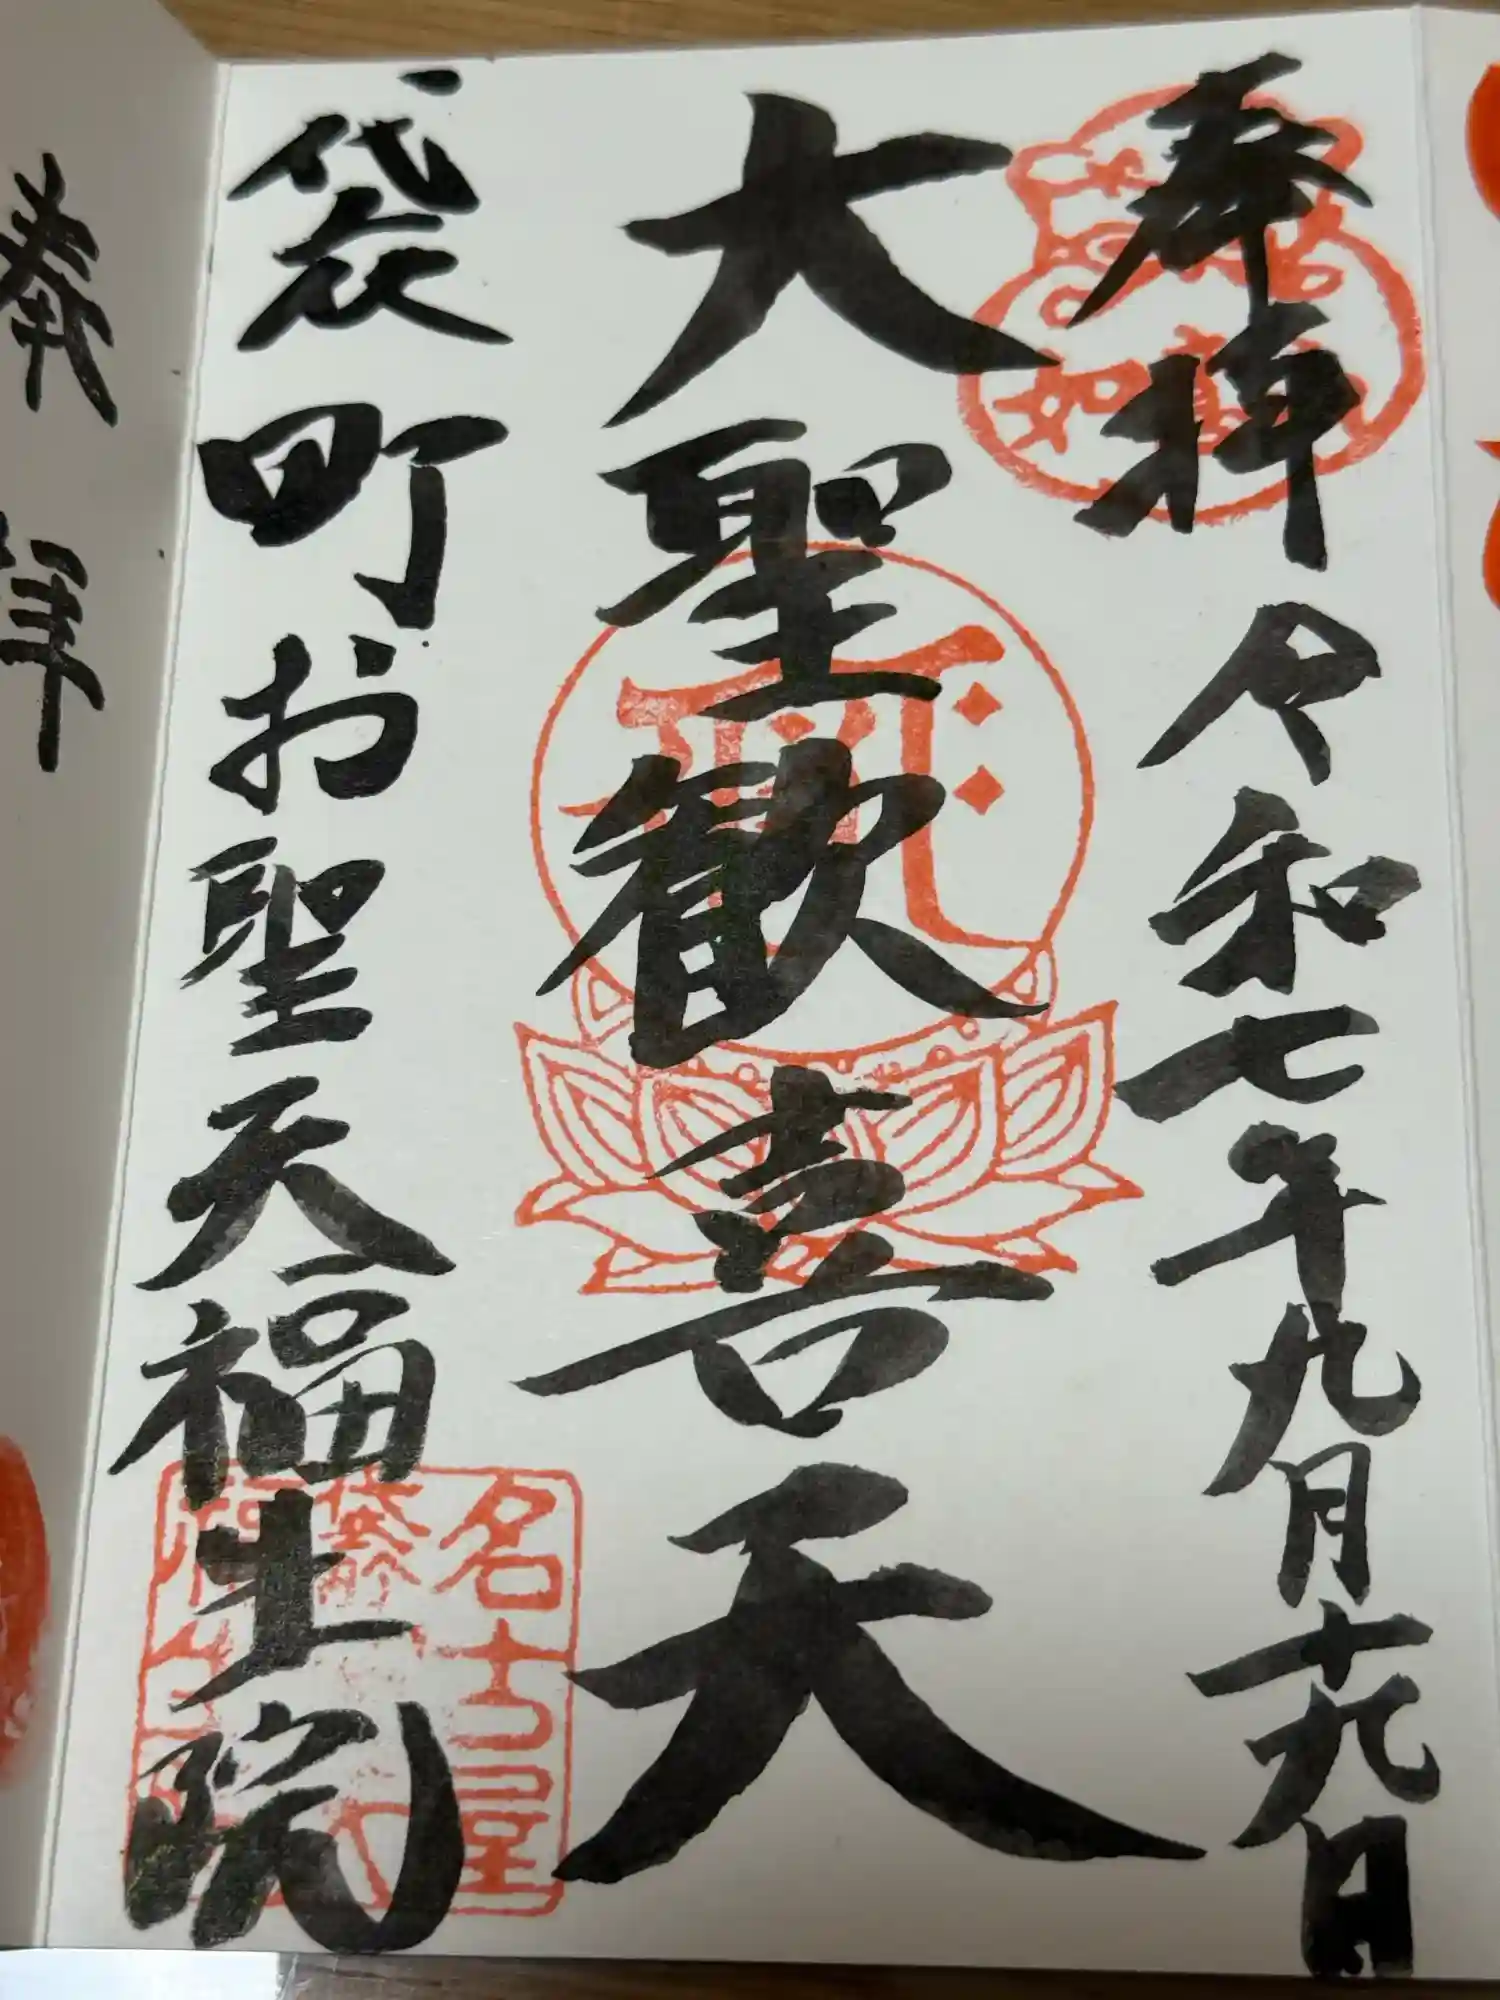 奉拝 令和七年九月十九日
大聖歓喜天
袋町お聖天福生院
如意
名古屋
袋町
奉拝